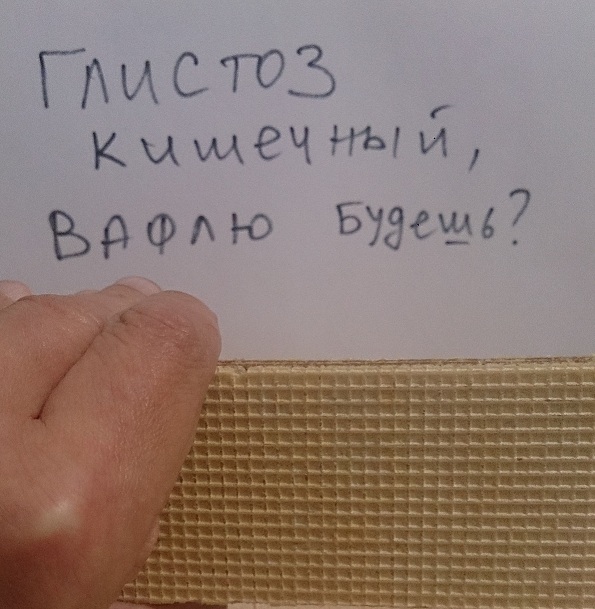 Глистоз
кишечный,
вафлю будешь?